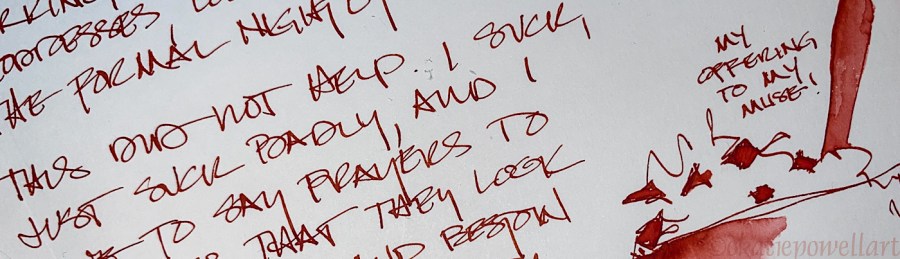 THE FORMAL NIGHT OF
THIS DID NOT HELP. I SUCK,
JUST SUCK BADLY, AND I
TO SAY PRAYERS TO
THAT THEY LOOK
AND BESTOW
MY
OFFERING
TO MY
MUSE!
©katiepowellart